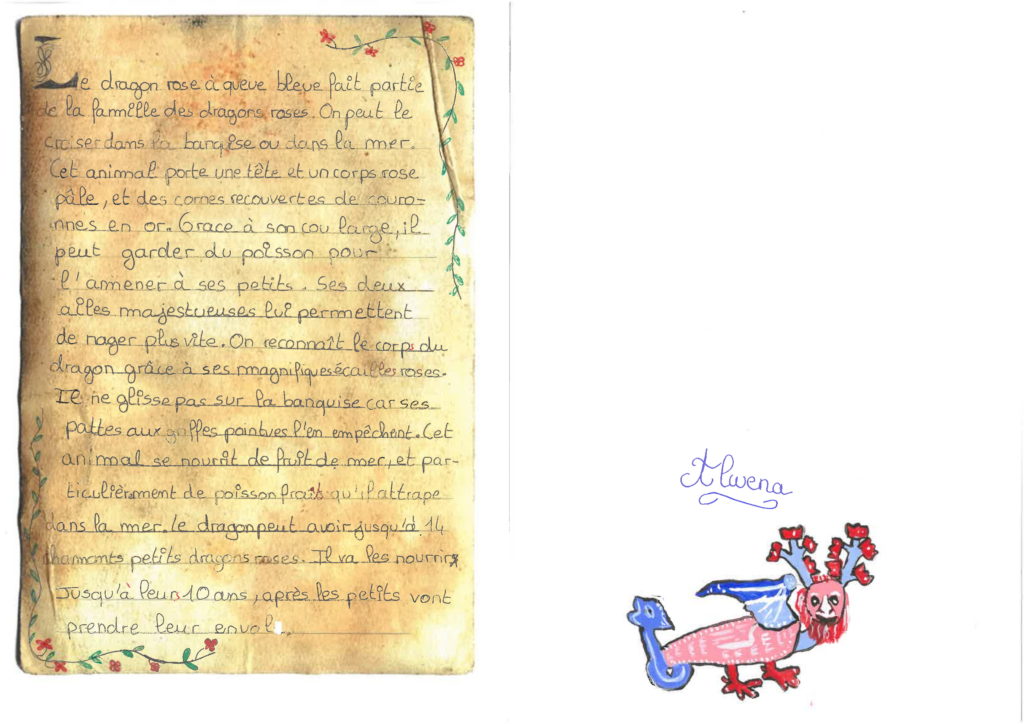 Le dragon rose à queue bleue fait partie
de la famille des dragons roses. On peut le
croiser dans la banquise ou dans la mer.
Cet animal porte une tête et un corps rose
pâle, et des cornes recouvertes de couro-
nnes en or. Grace à son cou large, il
peut garder du poisson pour
l'amener à ses petits. Ses deux
ailes majestueuses lui permettent
de nager plus vite. On reconnaît le corps du
dragon grâce à ses magnifiques écailles roses.
Il ne glisse pas sur la banquise car ses
pattes aux griffes pointues l'en empêchent. Cet
animal se nourrit de fruit de mer, et par-
ticulièrment de poisson frait qu'il attrape
dans la mer. Le dragon peut avoir jusqu'à 14
charmants petits dragons roses. Il va les nourrir
jusqu'à leur 10 ans, après les petits vont
prendre leur envol.